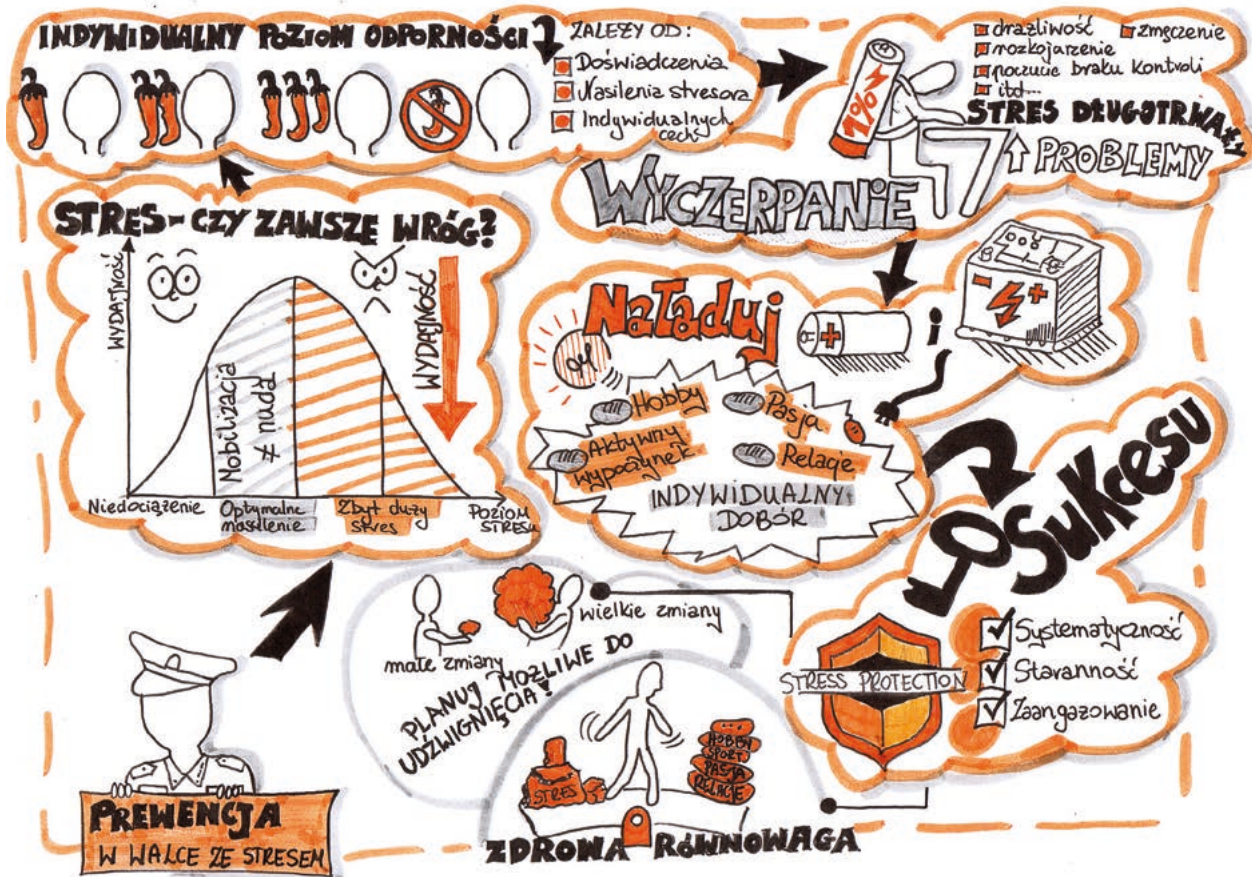 INDYWIDUALNY POZIOM ODPORNOŚCI
ZALEŻY OD:
Doświadczenia
Nasilenia stresora
Indywidualnych
cech
drażliwość
zmęczenie
rozkojarzenie
poczucie braku kontroli
itd...
STRES DŁUGOTRWAŁY
↑ PROBLEMY
1%
WYCZERPANIE
STRES - CZY ZAWSZE WRÓG?
WYDAJNOŚĆ
WYDAJNOŚĆ
Mobilizacja
≠ nuda
Niedociążenie
Optymalne
nasilenie
Zbyt duży
stres
POZIOM
STRESU
Naładuj
i
Hobby
Pasja
Aktywny
wypoczynek
Relacje
INDYWIDUALNY
DOBÓR
SuKcesu
Systematyczność
Staranność
Zaangażowanie
STRESS PROTECTION
małe zmiany
wielkie zmiany
PLANUJ MOŻLIWE DO
UDŹWIGNIĘCIA!
STRES
HOBBY
SPORT
PASJA
RELACJE
ZDROWA RÓWNOWAGA
PREWENCJA
W WALCE ZE STRESEM